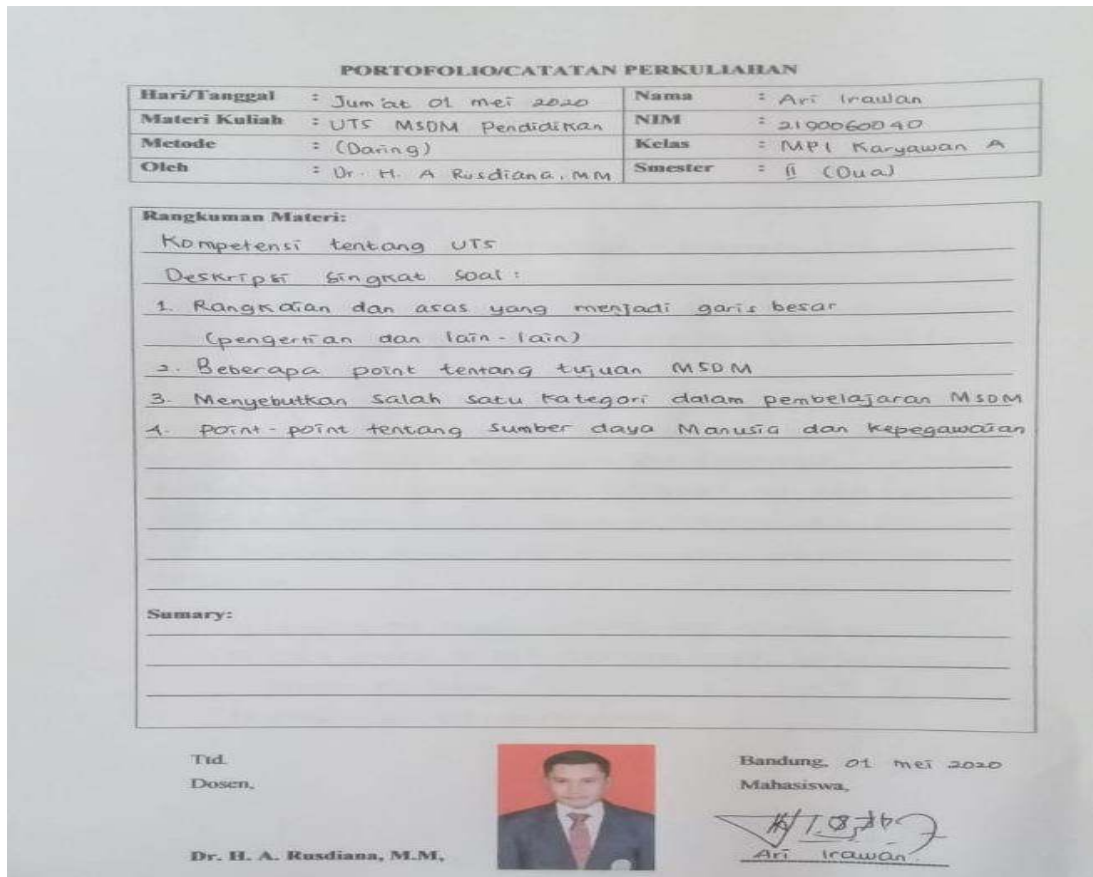 PORTOFOLIO/CATATAN PERKULIAHAN
Hari/Tanggal : Jum'at 01 mei 2020 Nama : Ari Irawan
Materi Kuliah : UTS MSDM Pendidikan NIM : 2190060040
Metode : (Daring) Kelas : MPI Karyawan A
Oleh : Dr. H. A Rusdiana, MM Smester : II (Dua)
Rangkuman Materi:
Kompetensi tentang UTS
Deskripsi singkat soal :
1. Rangkaian dan asas yang menjadi garis besar
(pengertian dan lain-lain)
2. Beberapa point tentang tujuan MSDM
3. Menyebutkan salah satu kategori dalam pembelajaran MSDM
4. point-point tentang sumber daya Manusia dan kepegawaian
Sumary:
Ttd.
Dosen,
Dr. H. A. Rusdiana, M.M,
Bandung, 01 mei 2020
Mahasiswa,
Ari Irawan